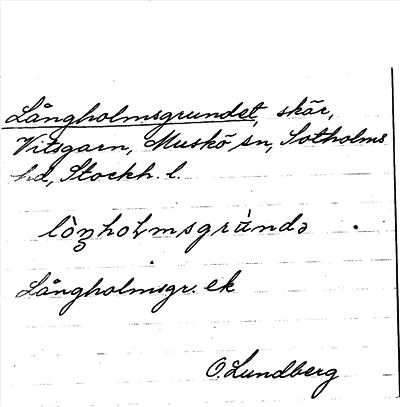 Långholmsgrundet, skär,
Vitsgarn, Muskö sn, Sotholms
hd, Stockh. l.
lòŋhoɫmsgrùndə
Långholmsgr. ek
O. Lundberg